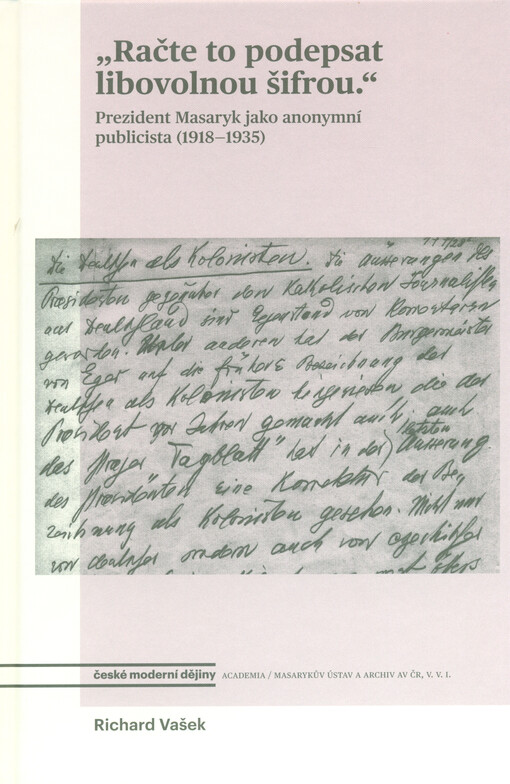 „Račte to podepsat
libovolnou šifrou.“
Prezident Masaryk jako anonymní
publicista (1918–1935)
Die Deutschen als Kolonisten. Die Äusserungen des
Präsidenten gegenüber den katholischen Journalisten
aus Deutschland sind Gegenstand von Komentaren
geworden. Unter anderen hat der Burgermeister
von Eger auf die frühere Bezeichnung der
Deutschen als Kolonisten hingewiesen die der
Präsident vor Jahren gemacht auch
das Prager Tagblatt" hat in der letzten Äusserung
des Präsidenten eine Korrektur der Be-
zeichnung als Kolonisten gesehen. Nicht nur
von deutscher sondern auch von čechischer
české moderní dějiny ACADEMIA / MASARYKŮV ÚSTAV A ARCHIV AV ČR, V. V. I.
Richard Vašek